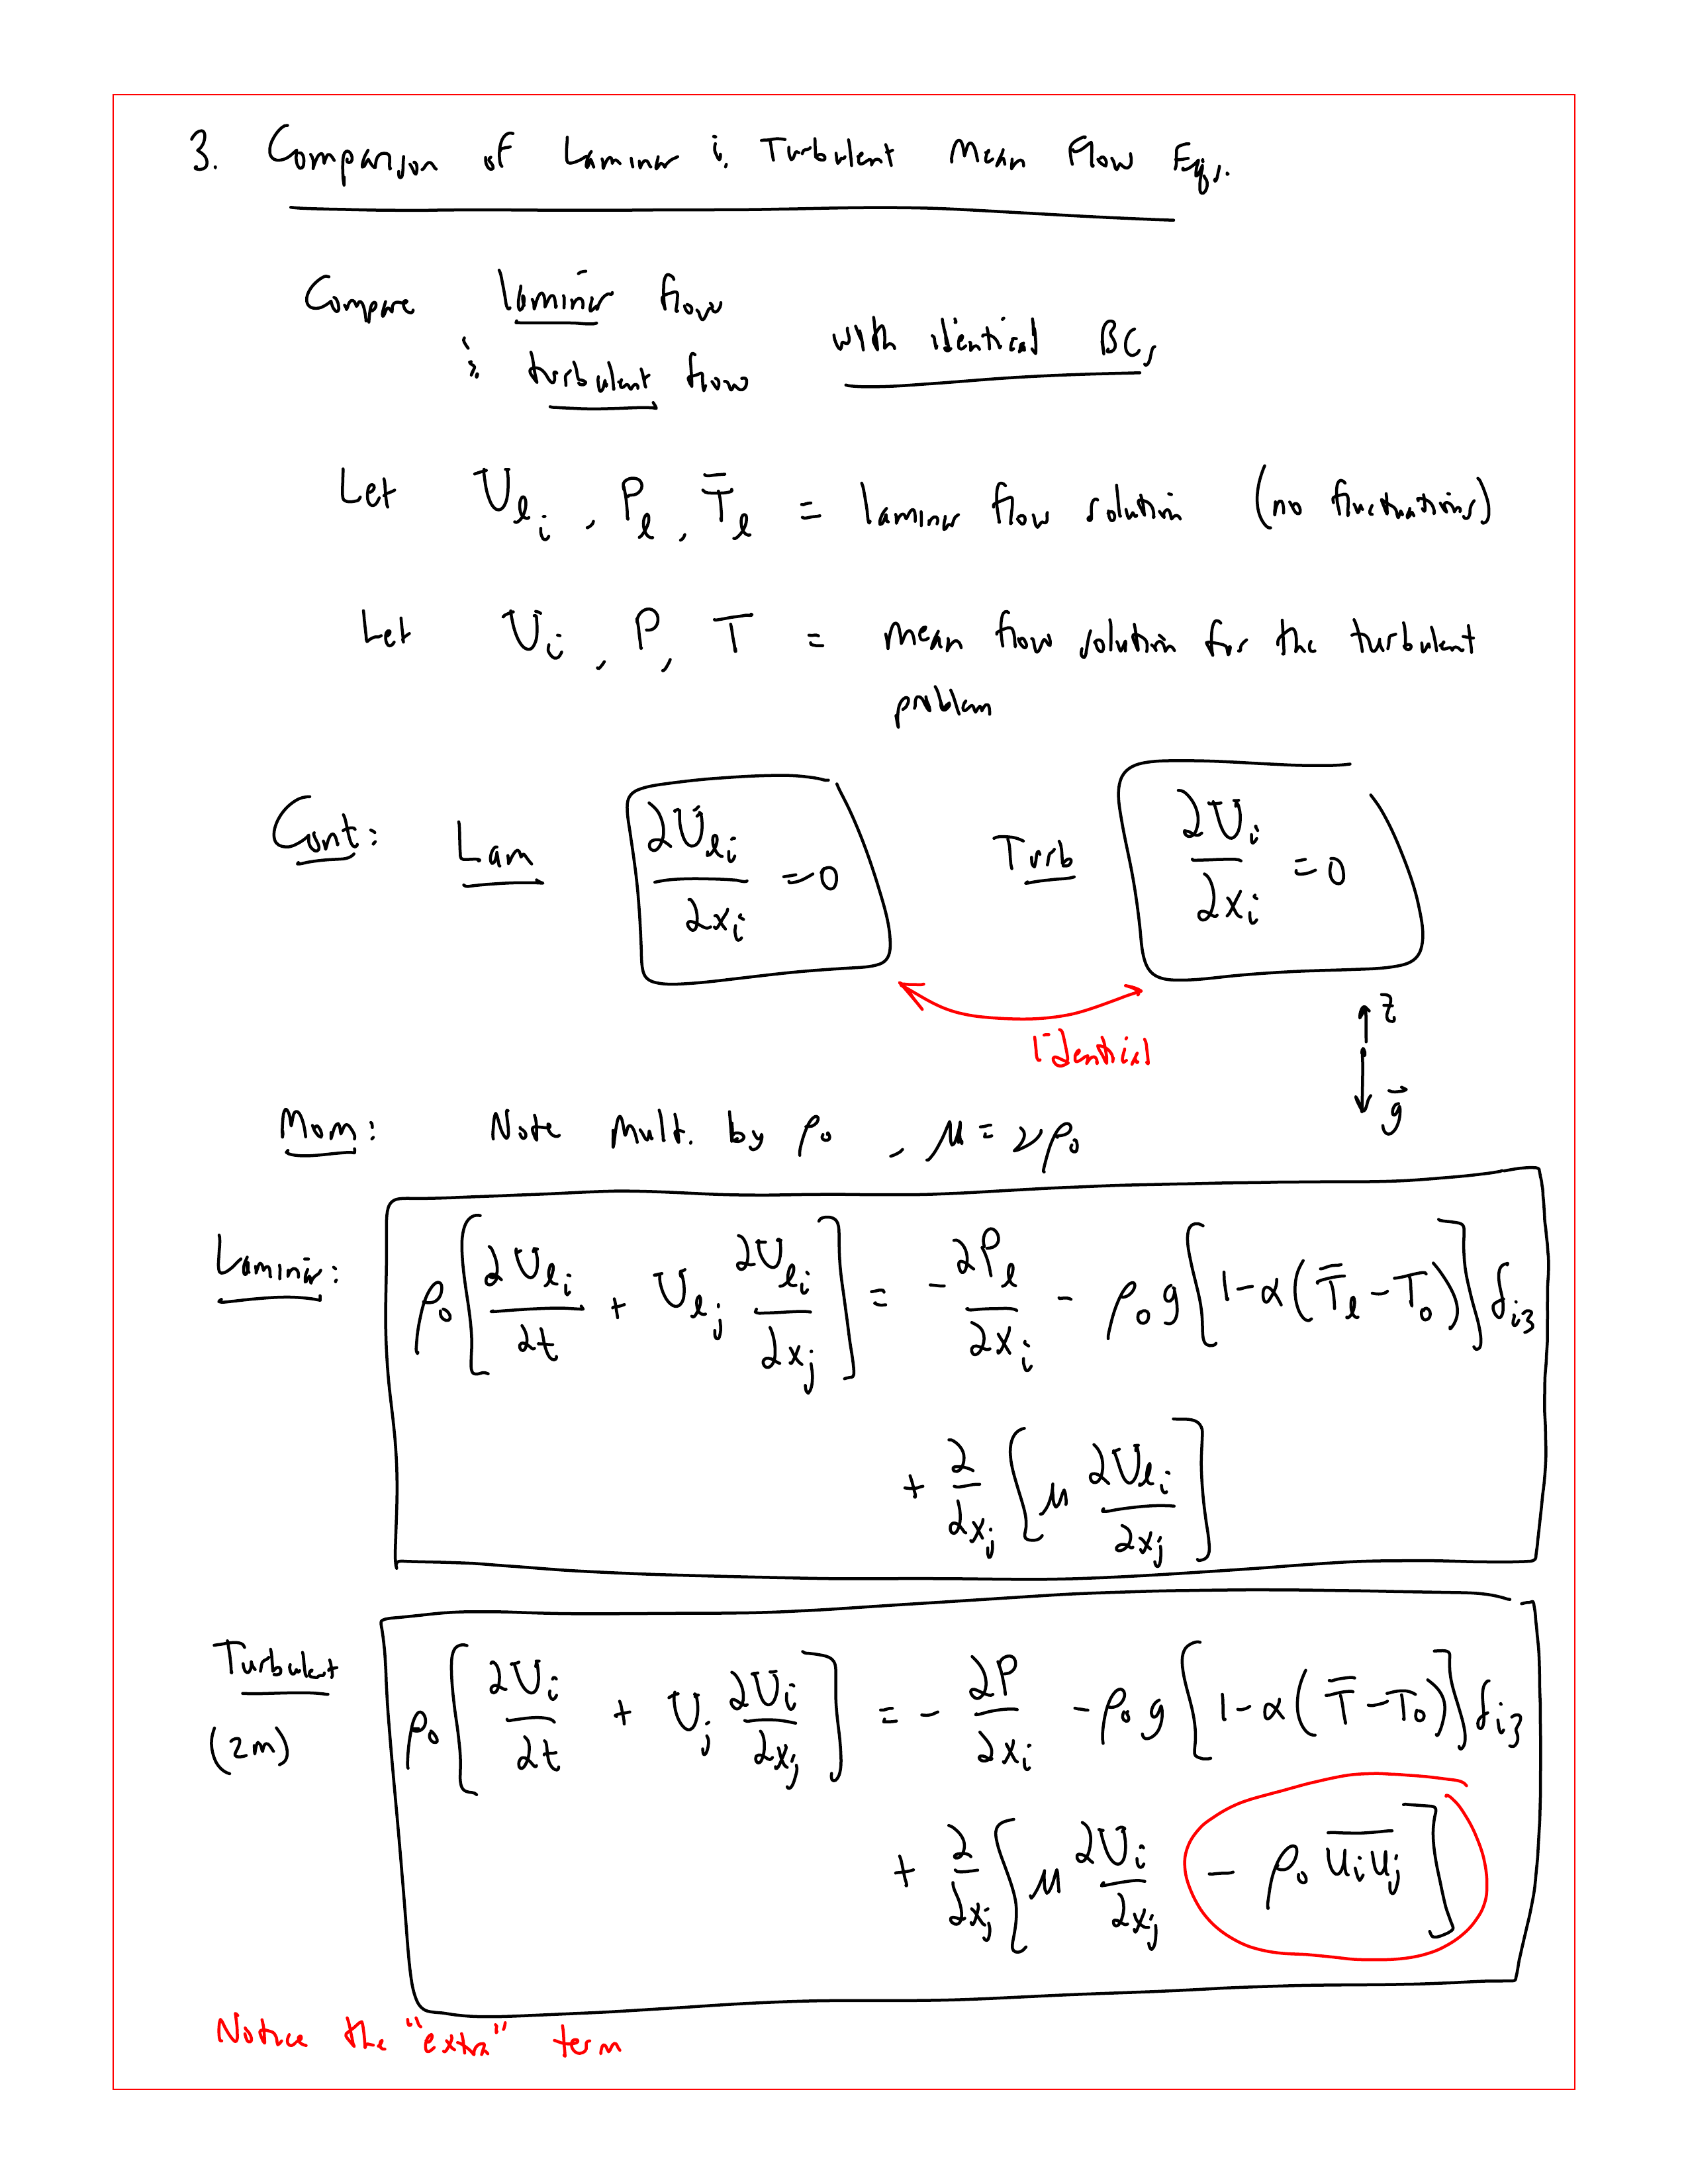 3. Comparison of Laminar & Turbulent Mean Flow Eqs.
Compare laminar flow
& turbulent flow with identical BCs
Let U_{ℓi}, P_ℓ, T̄_ℓ = laminar flow solution (no fluctuations)
Let U_i, P, T = mean flow solution for the turbulent
problem
Cont: Lam ∂U_{ℓi}/∂x_i = 0 Turb ∂U_i/∂x_i = 0
Identical
z
g⃗
Mom: Note Mult. by ρ₀, μ = νρ₀
Laminar: ρ₀[∂U_{ℓi}/∂t + U_{ℓj} ∂U_{ℓi}/∂x_j] = -∂P_ℓ/∂x_i - ρ₀g[1-α(T̄_ℓ-T₀)]δ_{i3}
+ ∂/∂x_j [μ ∂U_{ℓi}/∂x_j]
Turbulent (2m) ρ₀[∂U_i/∂t + U_j ∂U_i/∂x_j] = -∂P/∂x_i - ρ₀g[1-α(T̄-T₀)]δ_{i3}
+ ∂/∂x_j [μ ∂U_i/∂x_j - ρ₀ \overline{u_i u_j}]
Notice the "extra" term